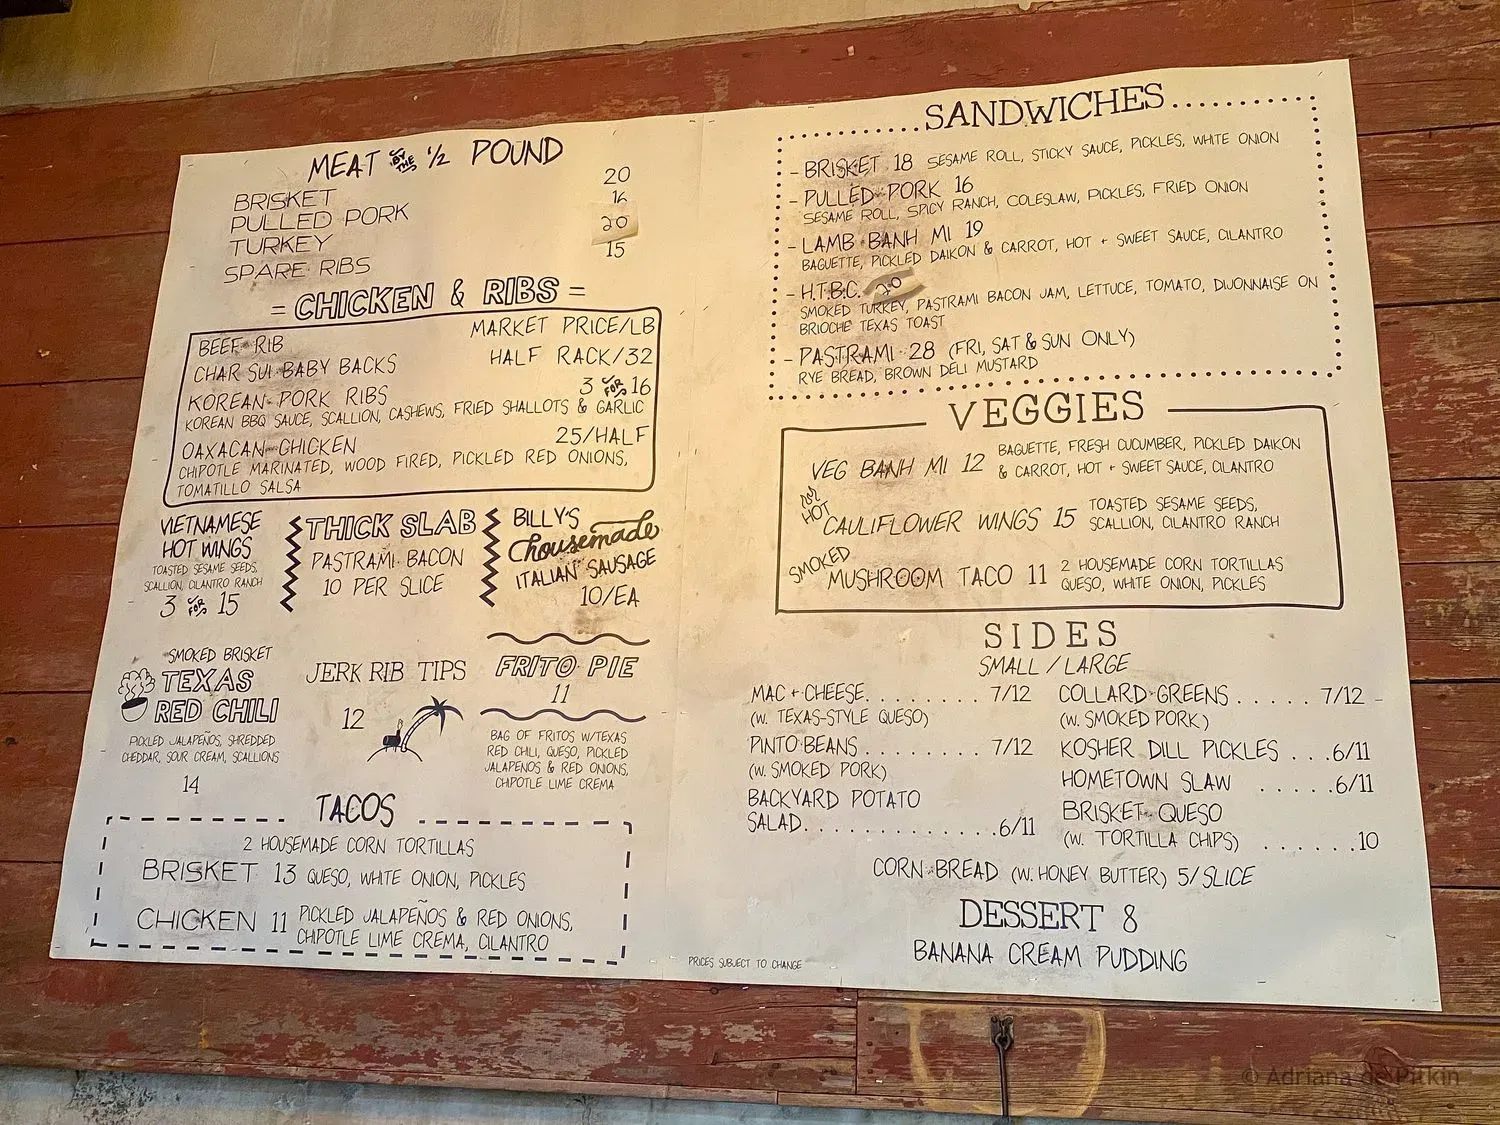 MEAT BY THE 1/2 POUND
BRISKET 20
PULLED PORK 16
TURKEY 20
SPARE RIBS 15
= CHICKEN & RIBS =
BEEF RIB MARKET PRICE/LB
CHAR SUI BABY BACKS HALF RACK/32
KOREAN PORK RIBS 3 FOR 16
KOREAN BBQ SAUCE, SCALLION, CASHEWS, FRIED SHALLOTS & GARLIC
OAXACAN CHICKEN 25/HALF
CHIPOTLE MARINATED, WOOD FIRED, PICKLED RED ONIONS,
TOMATILLO SALSA
VIETNAMESE
HOT WINGS
TOASTED SESAME SEEDS,
SCALLION, CILANTRO RANCH
3 FOR 15
THICK SLAB
PASTRAMI BACON
10 PER SLICE
BILLY'S
housemade
ITALIAN SAUSAGE
10/EA
SMOKED BRISKET
TEXAS
RED CHILI
PICKLED JALAPEÑOS, SHREDDED
CHEDDAR, SOUR CREAM, SCALLIONS
14
JERK RIB TIPS
12
FRITO PIE
11
BAG OF FRITOS W/TEXAS
RED CHILI, QUESO, PICKLED
JALAPEÑOS & RED ONIONS,
CHIPOTLE LIME CREMA
TACOS
2 HOUSEMADE CORN TORTILLAS
BRISKET 13 QUESO, WHITE ONION, PICKLES
CHICKEN 11 PICKLED JALAPEÑOS & RED ONIONS,
CHIPOTLE LIME CREMA, CILANTRO
SANDWICHES
- BRISKET 18 SESAME ROLL, STICKY SAUCE, PICKLES, WHITE ONION
- PULLED PORK 16
SESAME ROLL, SPICY RANCH, COLESLAW, PICKLES, FRIED ONION
- LAMB BANH MI 19
BAGUETTE, PICKLED DAIKON & CARROT, HOT + SWEET SAUCE, CILANTRO
- H.T.B.C. 20
SMOKED TURKEY, PASTRAMI BACON JAM, LETTUCE, TOMATO, DIJONNAISE ON
BRIOCHE TEXAS TOAST
- PASTRAMI 28 (FRI, SAT & SUN ONLY)
RYE BREAD, BROWN DELI MUSTARD
VEGGIES
VEG BANH MI 12 BAGUETTE, FRESH CUCUMBER, PICKLED DAIKON
& CARROT, HOT + SWEET SAUCE, CILANTRO
HOT
CAULIFLOWER WINGS 15 TOASTED SESAME SEEDS,
SCALLION, CILANTRO RANCH
SMOKED
MUSHROOM TACO 11 2 HOUSEMADE CORN TORTILLAS
QUESO, WHITE ONION, PICKLES
SIDES
SMALL / LARGE
MAC + CHEESE. . . . . . . . 7/12
(W. TEXAS-STYLE QUESO)
PINTO BEANS . . . . . . . . 7/12
(W. SMOKED PORK)
BACKYARD POTATO
SALAD. . . . . . . . . . . . .6/11
COLLARD GREENS . . . . . 7/12
(W. SMOKED PORK)
KOSHER DILL PICKLES . . .6/11
HOMETOWN SLAW . . . . .6/11
BRISKET QUESO
(W. TORTILLA CHIPS) . . . . . .10
CORN BREAD (W. HONEY BUTTER) 5/SLICE
DESSERT 8
BANANA CREAM PUDDING
PRICES SUBJECT TO CHANGE
© Adriana de Pitkin